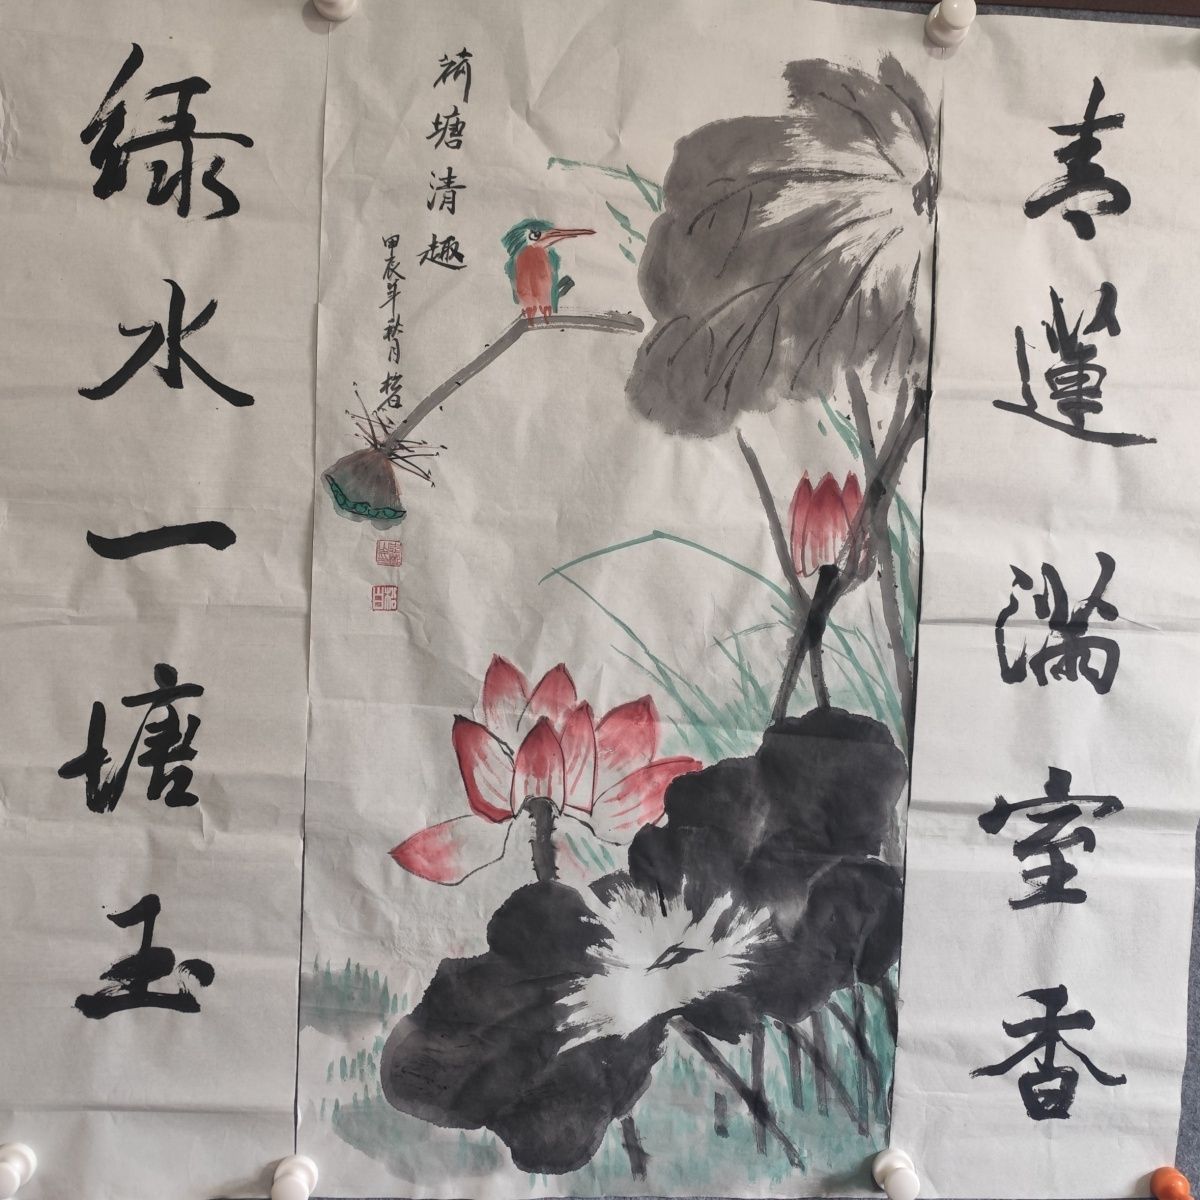 青莲满室香
荷塘清趣
甲辰年秋月
绿水一塘玉